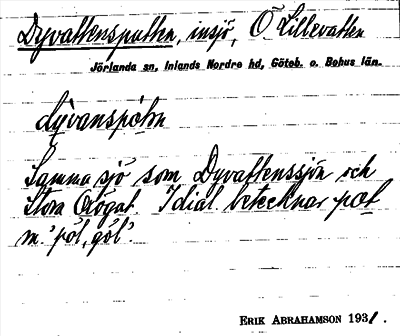 Dyvattensputten, insjö, Ö Lillevatten
Jörlanda sn, Inlands Nordre hd, Göteb. o. Bohus län.
dỳvanspötn
Samma sjö som Dyvattenssjön och
Stora Ålögat. I dial. betecknar pøt
m. 'pöl, göl'.
ERIK ABRAHAMSON 1931.